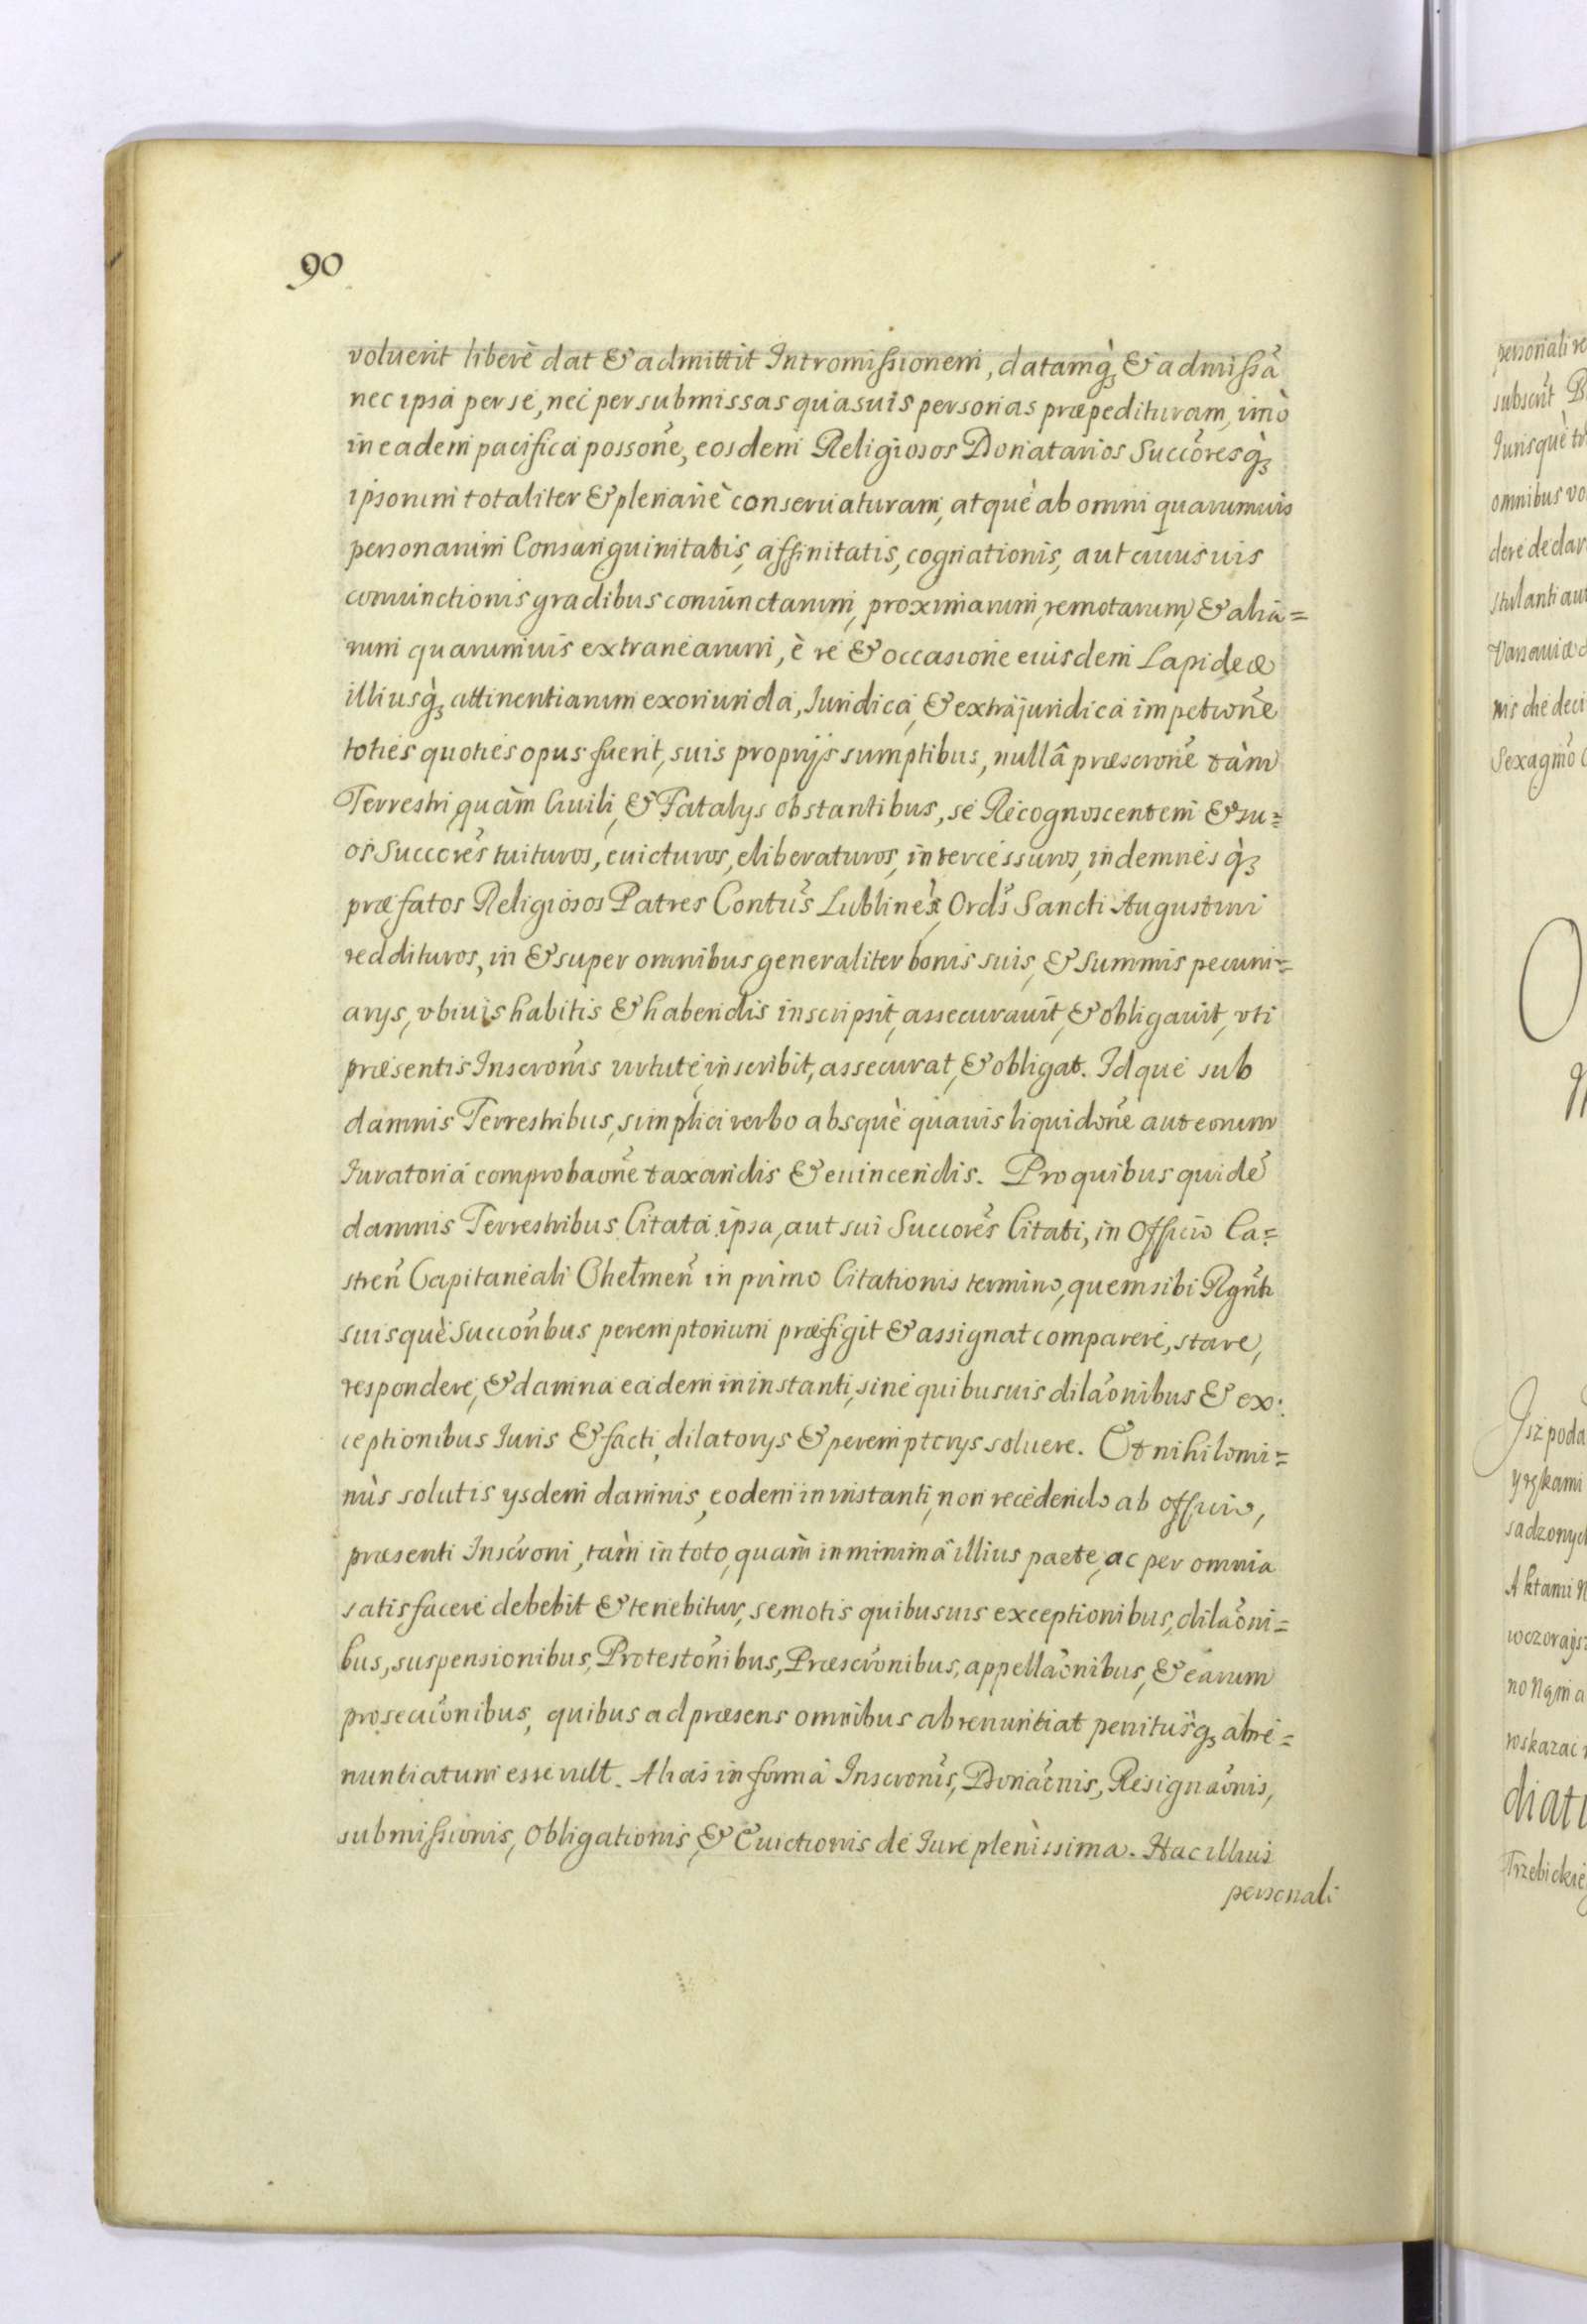 90
voluerit liberè dat & admittit Intromissionem, datamq́₃ & admissā
nec ipsa per se, nec per submissas quasuis personas præpedituram, imò
in eadem pacifica possone, eosdem Religiosos Donatarios Succoresq́₃
ipsorum totaliter & plenariè conseruaturam, atque ab omni quarumuis
personarum Consanguinitatis, affinitatis, cognationis, aut cuiusuis
coniunctionis gradibus coniunctarum, proximarum, remotarum, & alia=
rum quarumuis extranearum, è re & occasione eiusdem Lapideæ
illiusq́₃ attinentiarum exoriunda, Iuridica, & extrajuridica impetione
toties quoties opus fuerit, suis proprijs sumptibus, nullâ præscrone tàm
Terrestri quàm Ciuili, & Fatalys obstantibus, se Recognoscentem & su=
os Succores tuituros, euicturos, eliberaturos, intercessuros, indemnesq́₃
præfatos Religiosos Patres Contus Lublines, Ords Sancti Augustini
reddituros, in & super omnibus generaliter bonis suis, & Summis pecuni=
arys, vbiuis habitis & habendis inscripsit, assecurauit, & obligauit, vti
præsentis Inscronis virtute, inscribit, assecurat, & obligat. Idque sub
damnis Terrestribus, simplici verbo absquè quauis liquidone aut eorum
Iuratoria comprobaone taxandis & euincendis. Pro quibus quidē
damnis Terrestribus Citata ipsa, aut sui Succores Citati, in Officio Ca=
stren Capitaneali Chełmen in primo Citationis termino, quem sibi Rgnti
suisquè Succoribus peremptorium præfigit & assignat comparere, stare,
respondere, & damna eadem in instanti, sine quibusuis dilaonibus & ex:
ceptionibus Iuris & facti, dilatorys & peremptorys soluere. Et nihilomi=
nùs solutis ysdem damnis, eodem in instanti, non recedendo ab officio,
præsenti Inscroni, tàm in toto, quàm in minimâ illius parte, ac per omnia
satisfacere debebit & tenebitur, semotis quibusuis exceptionibus, dilaoni=
bus, suspensionibus, Protestonibus, Præscronibus, appellaonibus, & earum
prosecuonibus, quibus ad præsens omnibus abrenuntiat penitusq́₃ abre=
nuntiatum esse vult. Alias in forma Inscronis, Donaonis, Resignaonis,
submissionis, Obligationis, & Euictionis de Iure plenissima. Hac illius
personali
personali re
subscrit
Iurisquè
omnibus vo
dere declar
stulanti aut
Varsauiæ
nis die deci
Sexagmo
O
Jsz poda
sadzonych
Aktami
wczorajs
wskazac
diatu
Trzebickie